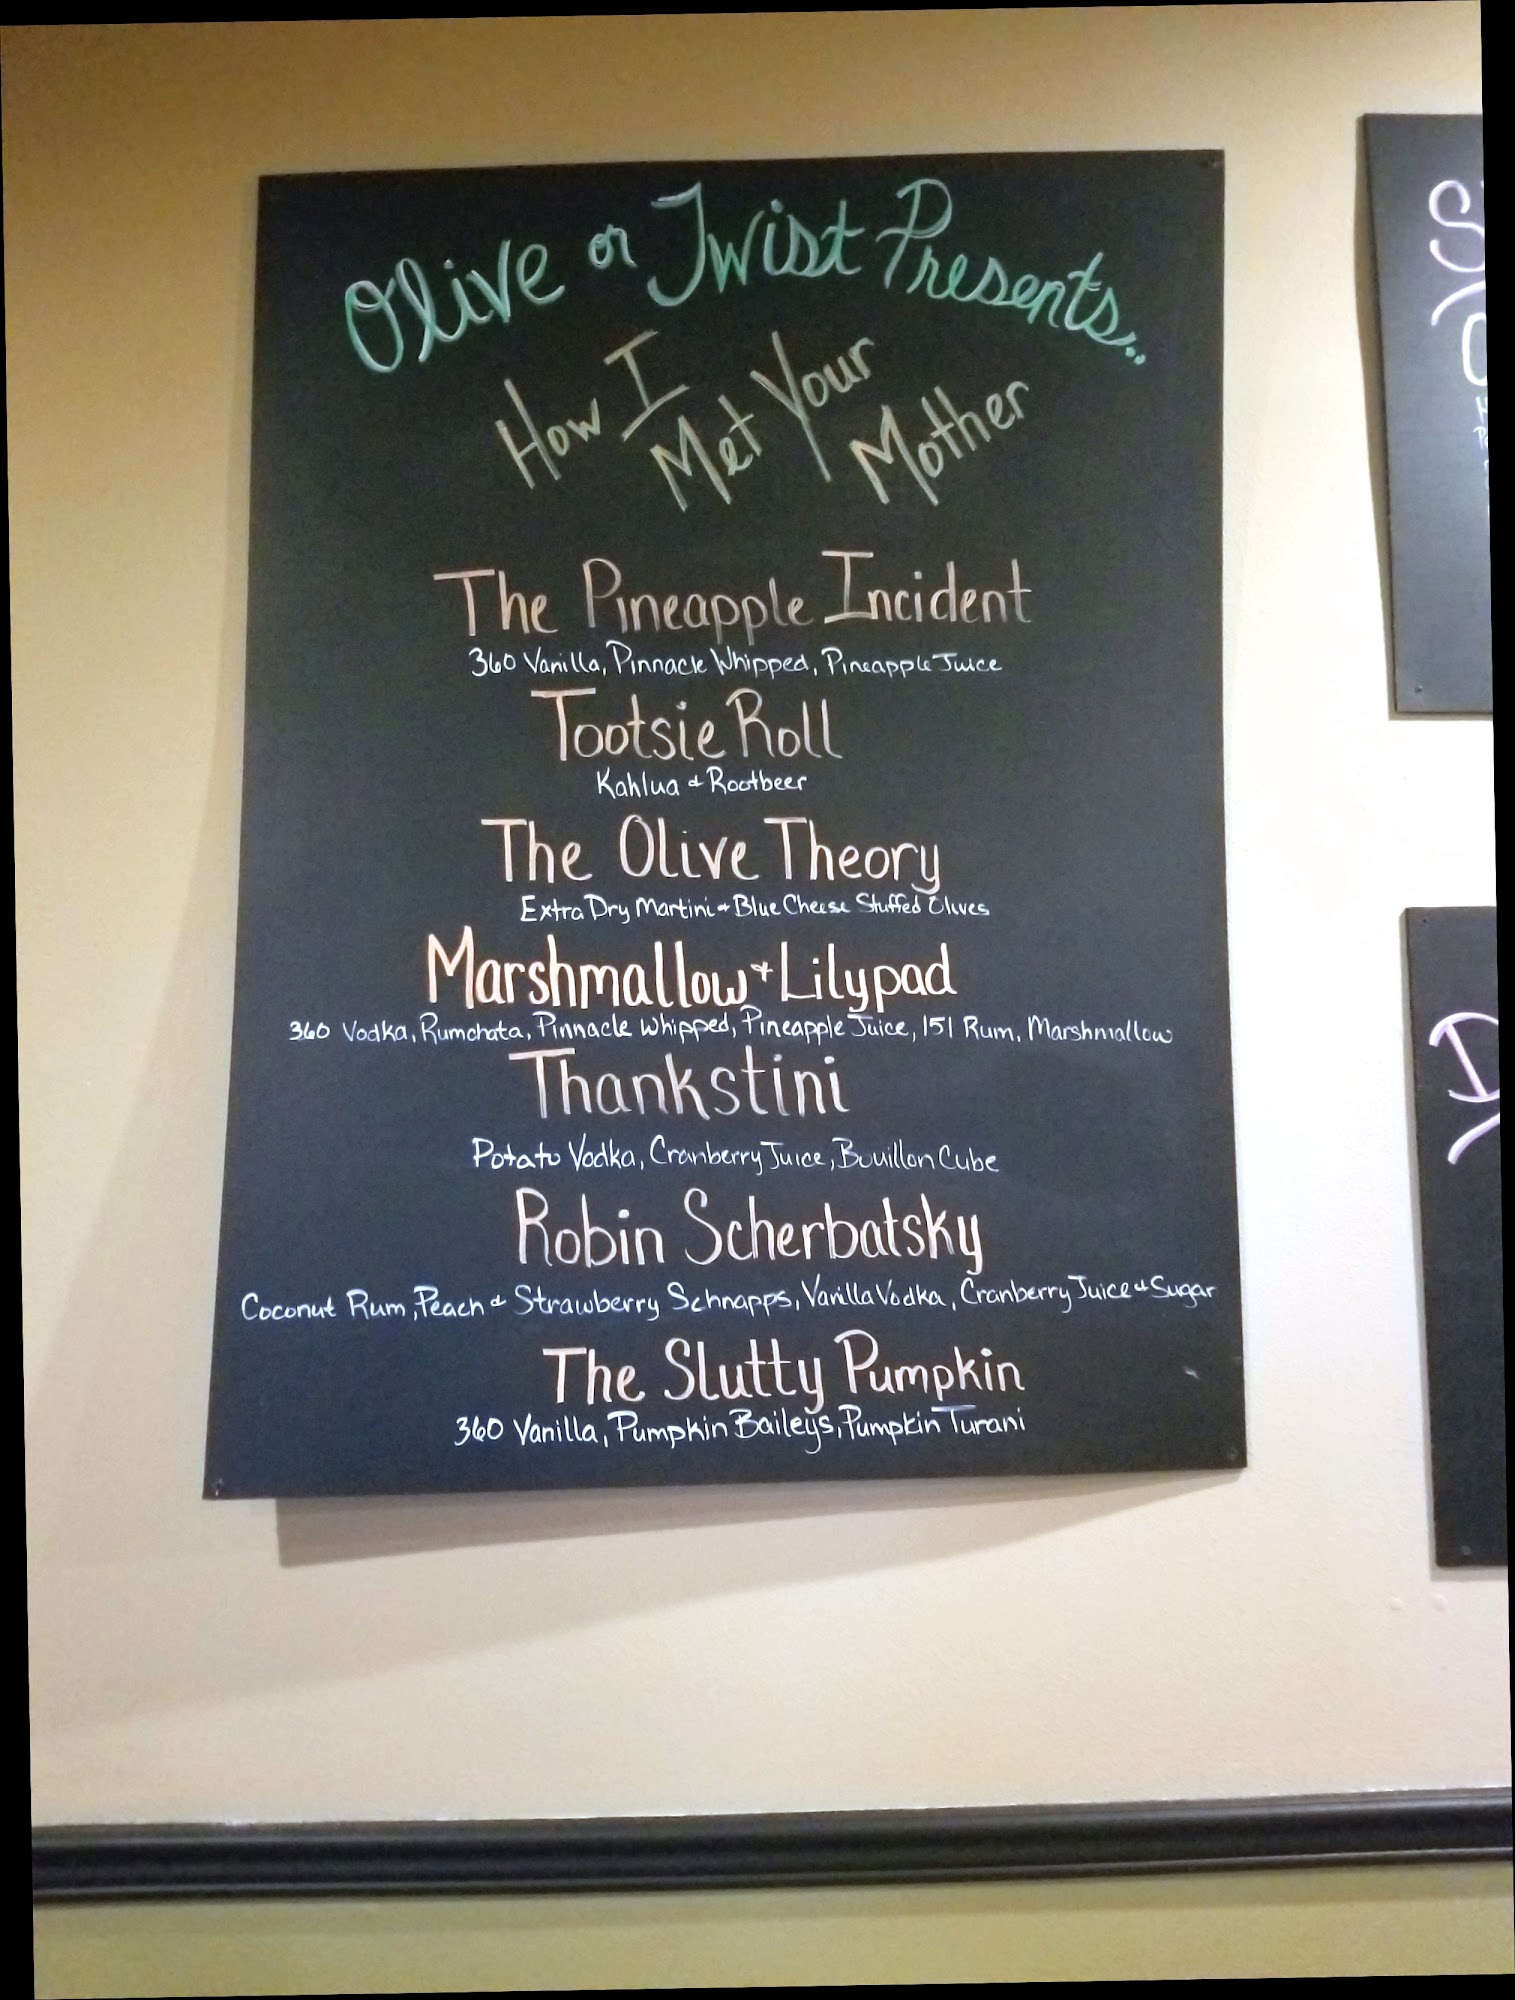 Olive or Twist Presents..
How I Met Your Mother
The Pineapple Incident
360 Vanilla, Pinnacle Whipped, Pineapple Juice
Tootsie Roll
Kahlua & Rootbeer
The Olive Theory
Extra Dry Martini & Blue Cheese Stuffed Olives
Marshmallow & Lilypad
360 Vodka, Rumchata, Pinnacle Whipped, Pineapple Juice, 151 Rum, Marshmallow
Thankstini
Potato Vodka, Cranberry Juice, Bouillon Cube
Robin Scherbatsky
Coconut Rum, Peach & Strawberry Schnapps, Vanilla Vodka, Cranberry Juice & Sugar
The Slutty Pumpkin
360 Vanilla, Pumpkin Baileys, Pumpkin Turani